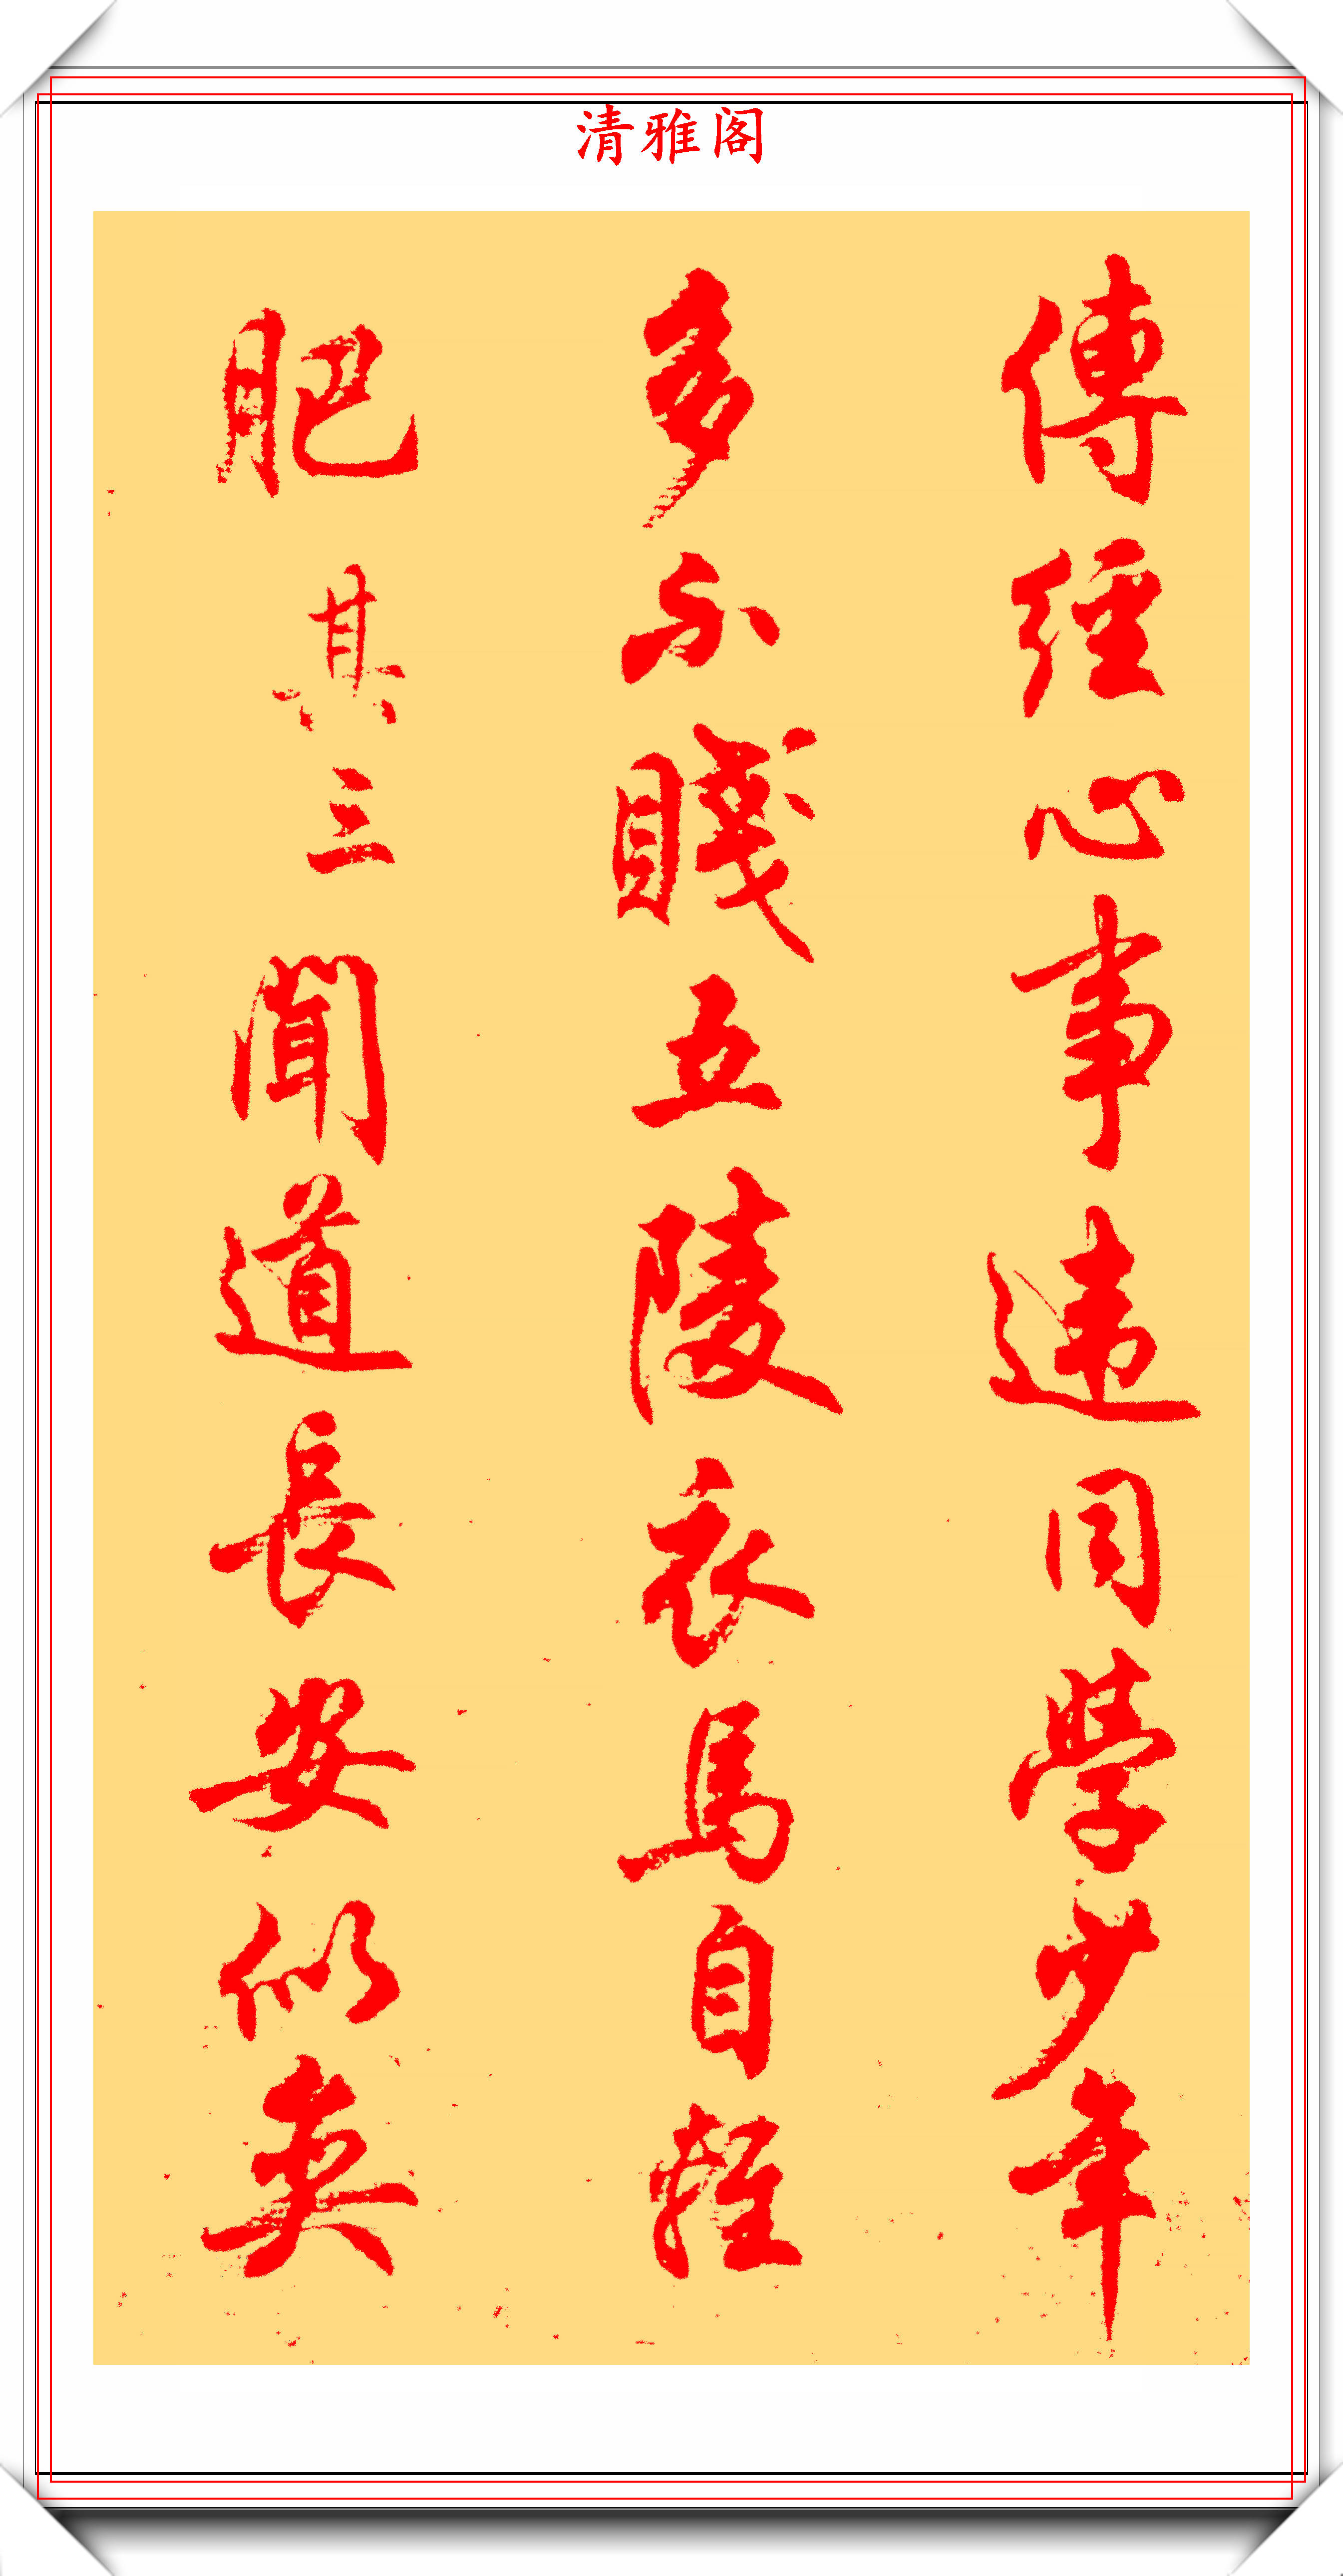 清雅阁
傳經心事違同學少年
多不賤五陵衣馬自輕
肥其三聞道長安似奕